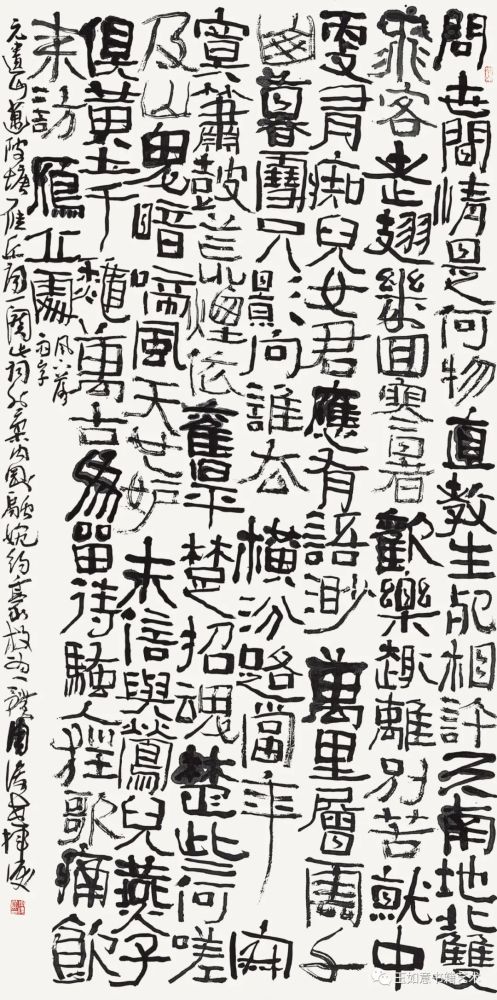 問世間情是何物直教生死相許天南地北雙
飛客老翅幾回寒暑歡樂趣離別苦就中
更有痴兒女君應有語渺萬里層雲千
山暮雪只影向誰去橫汾路當年寂
寞簫鼓荒煙依舊平楚招魂楚些何嗟
及山鬼暗啼風天也妒未信與鶯兒燕子
俱黃土千秋萬古為留待騷人狂歌痛飲
來訪鴈丘處
元遺山邁陂塘雁丘詞一闋此詞融婉約豪放為一體
玉如意书籍艺术